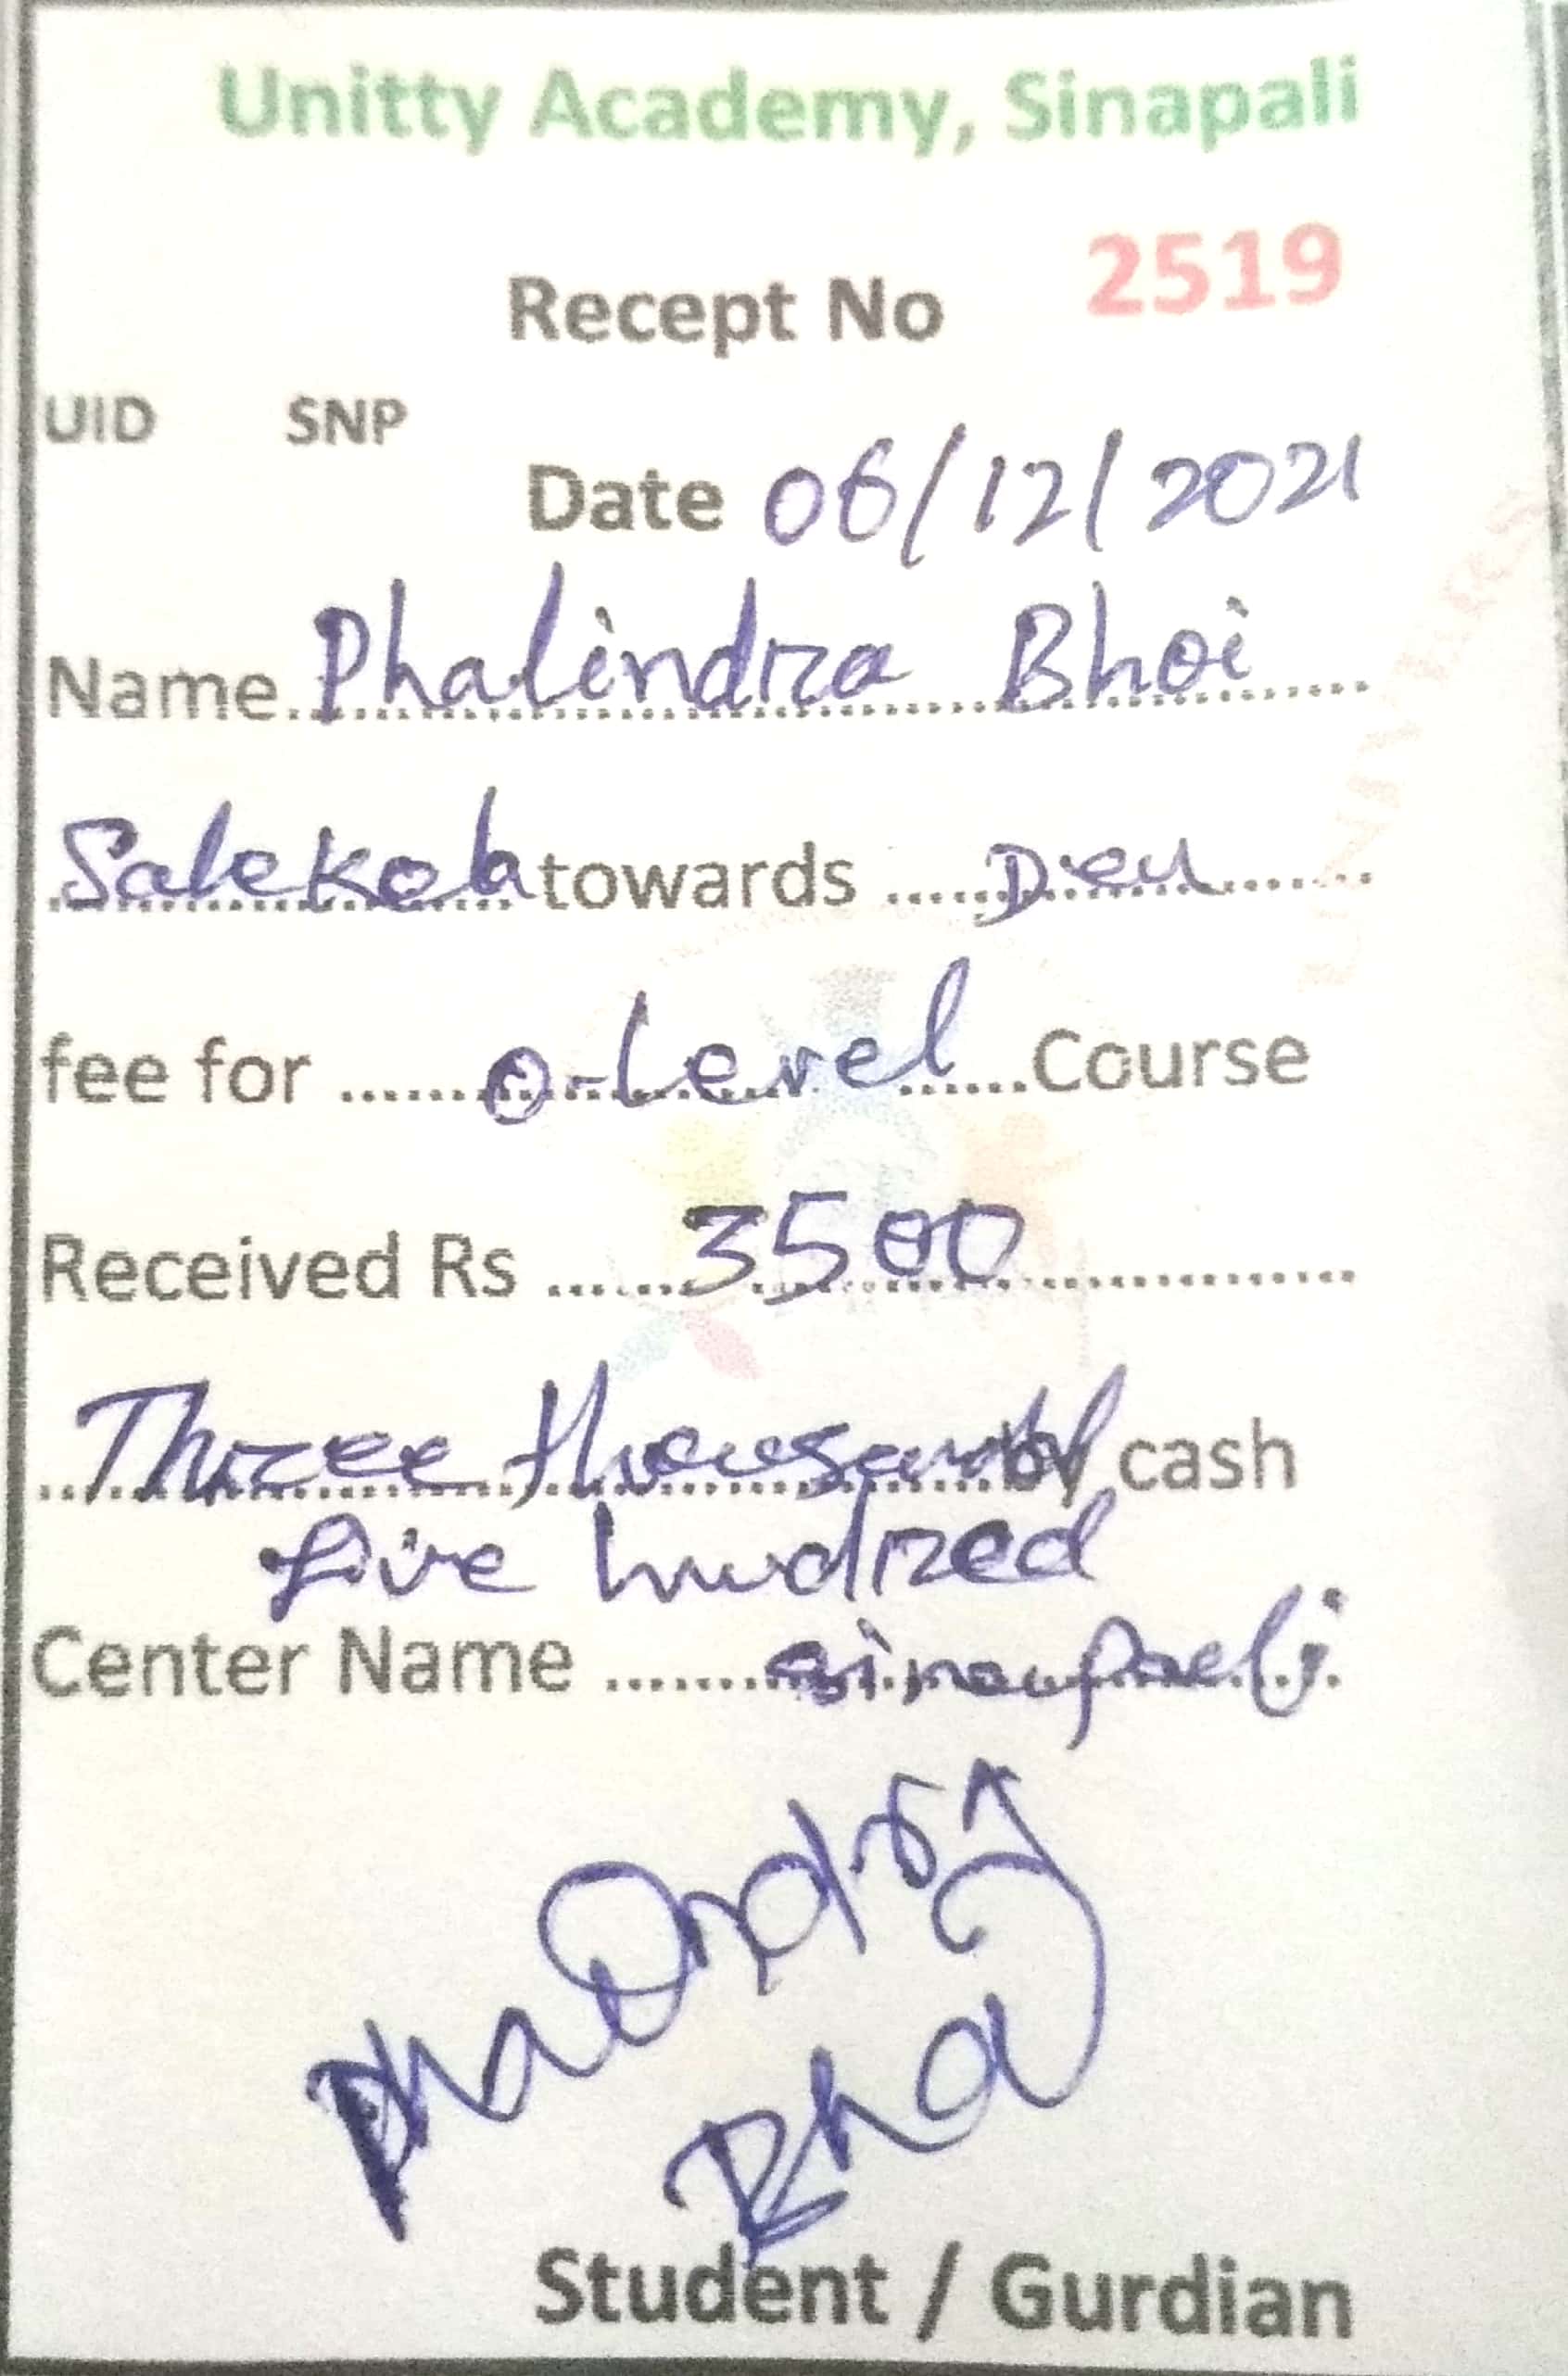 Unitty Academy, Sinapali
Recept No 2519
UID SNP
Date 06/12/2021
Name Phalindra Bhoi
towards Deu
fee for o-level Course
Received Rs 3500
Three thousand by cash
five hudred
Center Name sinapali
Phalindra
Bhoi
Student / Gurdian